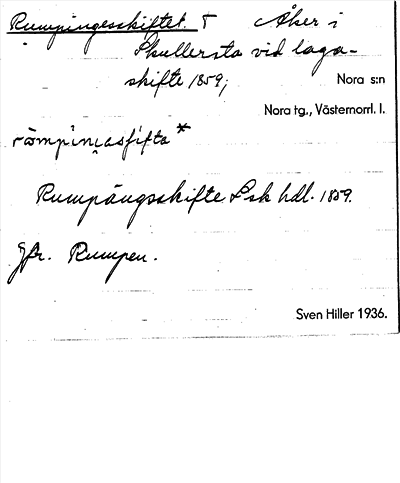 Rumpingesskiftet. † Åker i
Skullersta vid laga-
skifte 1859; Nora s:n
Nora tg., Västernorrl. l.
Rumpängsskifte Lsk hdl. 1859.
Jfr. Rumpen.
Sven Hiller 1936.